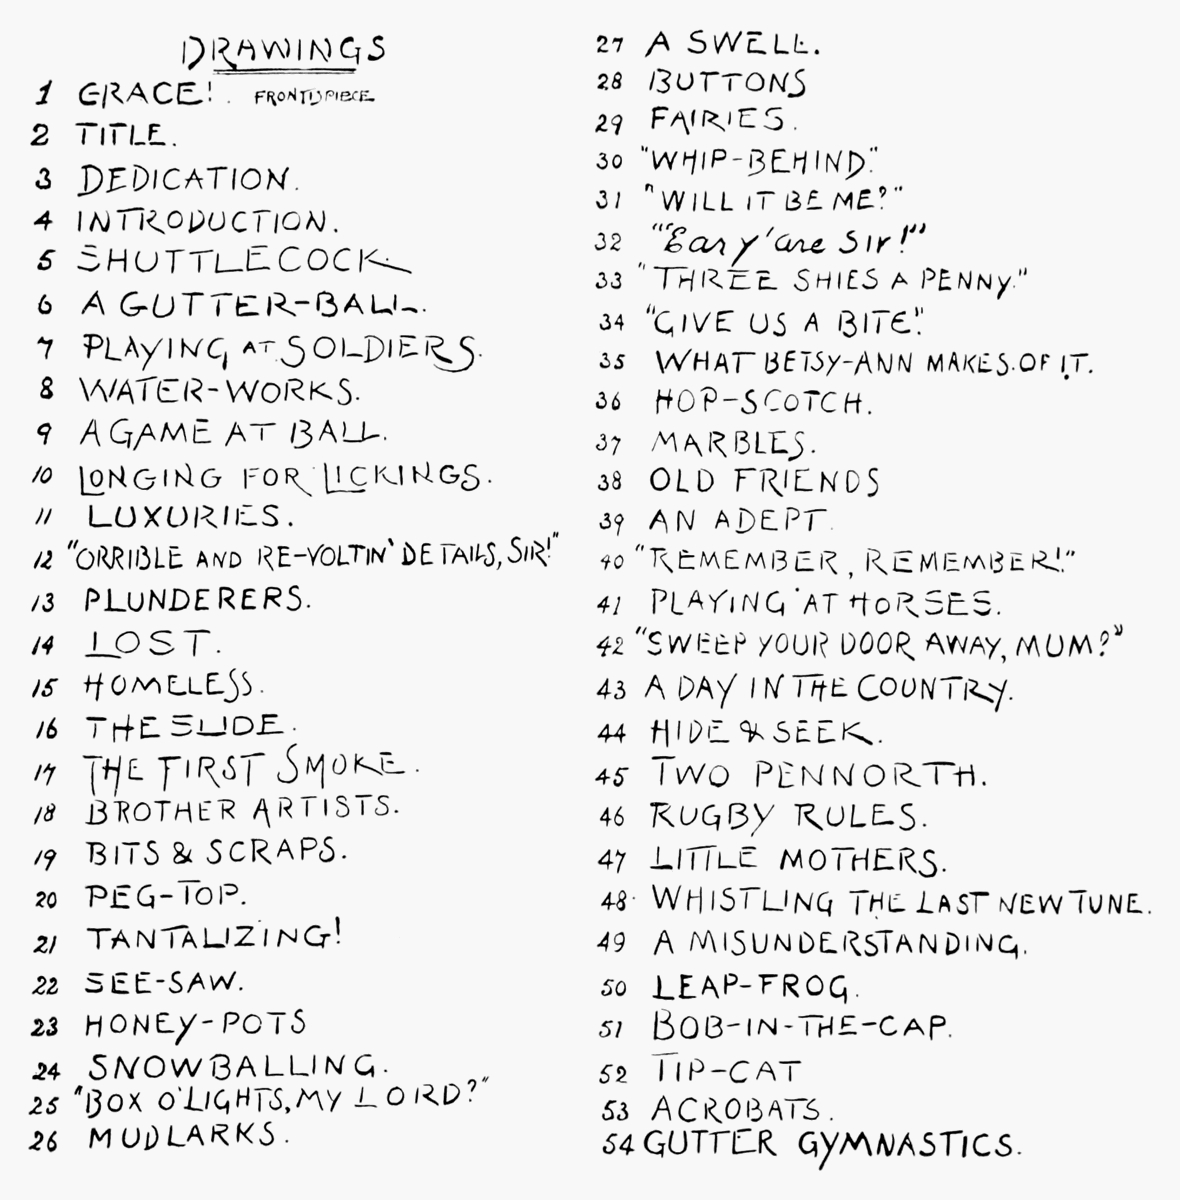 DRAWINGS
1 GRACE! . FRONTISPIECE
2 TITLE.
3 DEDICATION.
4 INTRODUCTION.
5 SHUTTLECOCK.
6 A GUTTER-BALL.
7 PLAYING AT SOLDIERS.
8 WATER-WORKS.
9 A GAME AT BALL.
10 LONGING FOR LICKINGS.
11 LUXURIES.
12 "ORRIBLE AND RE-VOLTIN' DETAILS, SIR!"
13 PLUNDERERS.
14 LOST.
15 HOMELESS.
16 THE SLIDE.
17 THE FIRST SMOKE.
18 BROTHER ARTISTS.
19 BITS & SCRAPS.
20 PEG-TOP.
21 TANTALIZING!
22 SEE-SAW.
23 HONEY-POTS
24 SNOWBALLING.
25 "BOX O'LIGHTS, MY LORD?"
26 MUDLARKS.
27 A SWELL.
28 BUTTONS
29 FAIRIES.
30 "WHIP-BEHIND."
31 "WILL IT BE ME?"
32 "'Ear y'are Sir!"
33 "THREE SHIES A PENNY."
34 "GIVE US A BITE."
35 WHAT BETSY-ANN MAKES.OF IT.
36 HOP-SCOTCH.
37 MARBLES.
38 OLD FRIENDS
39 AN ADEPT.
40 "REMEMBER, REMEMBER!"
41 PLAYING AT HORSES.
42 "SWEEP YOUR DOOR AWAY, MUM?"
43 A DAY IN THE COUNTRY.
44 HIDE & SEEK.
45 TWO PENNORTH.
46 RUGBY RULES.
47 LITTLE MOTHERS.
48 WHISTLING THE LAST NEW TUNE.
49 A MISUNDERSTANDING.
50 LEAP-FROG.
51 BOB-IN-THE-CAP.
52 TIP-CAT
53 ACROBATS.
54 GUTTER GYMNASTICS.